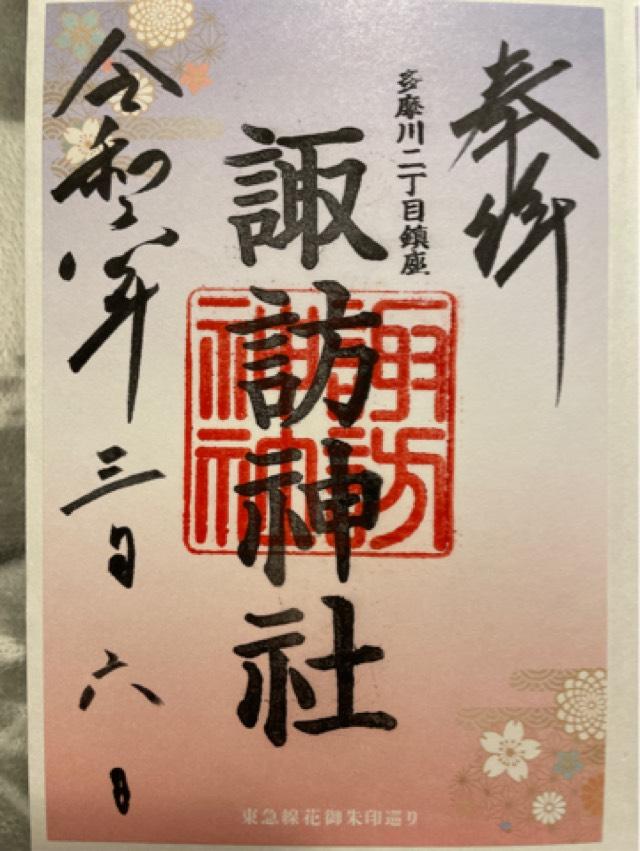 奉拝
多摩川二丁目鎮座
諏訪神社
諏訪神社
令和六年三月六日
東急線花御朱印巡り